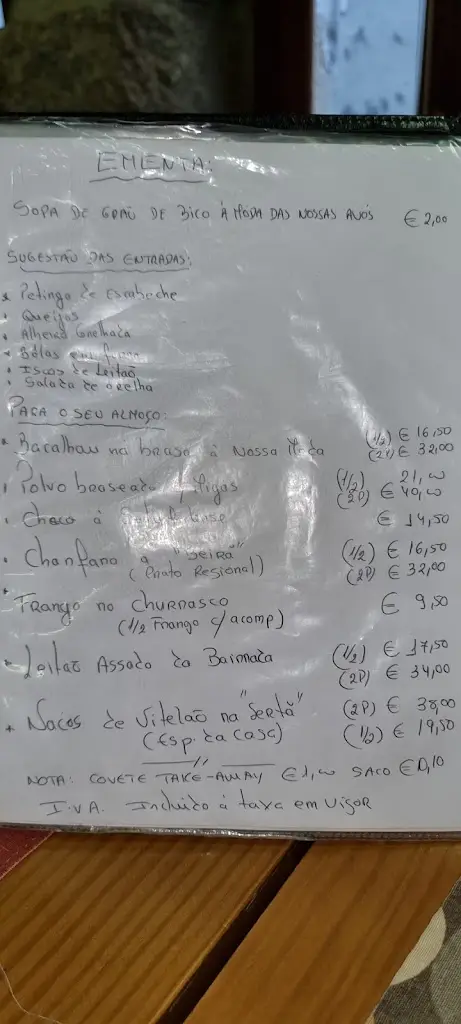 EMENTA:
SOPA DE GRÃO DE BICO À MODA DAS NOSSAS AVÓS € 2,00
SUGESTÃO DAS ENTRADAS:
* Petinga de Escabeche
• Queijos
• Alheira Grelhada
• Iscas de Leitão
• Salada de orelha
PARA O SEU ALMOÇO:
* Bacalhau na brasa à Nossa Moda (1/2) € 16,50
(2P) € 32,00
• Polvo braseado c/ Migas (1/2) 21,00
(2P) € 40,00
• Choco à € 14,50
• Chanfana à "Beira" (1/2) € 16,50
(Prato Regional) (2P) € 32,00
* Frango no CHURRASCO € 9,50
(1/2 Frango c/ acomp)
* Leitão Assado da Bairrada (1/2) € 17,50
(2P) € 34,00
* Nacos de Vitelão na "Sertã" (2P) € 38,00
(Esp. da Casa) (1/2) € 19,50
NOTA: COVETE TAKE-AWAY € 1,00 SACO € 0,10
I.V.A. Incluido á taxa em vigor